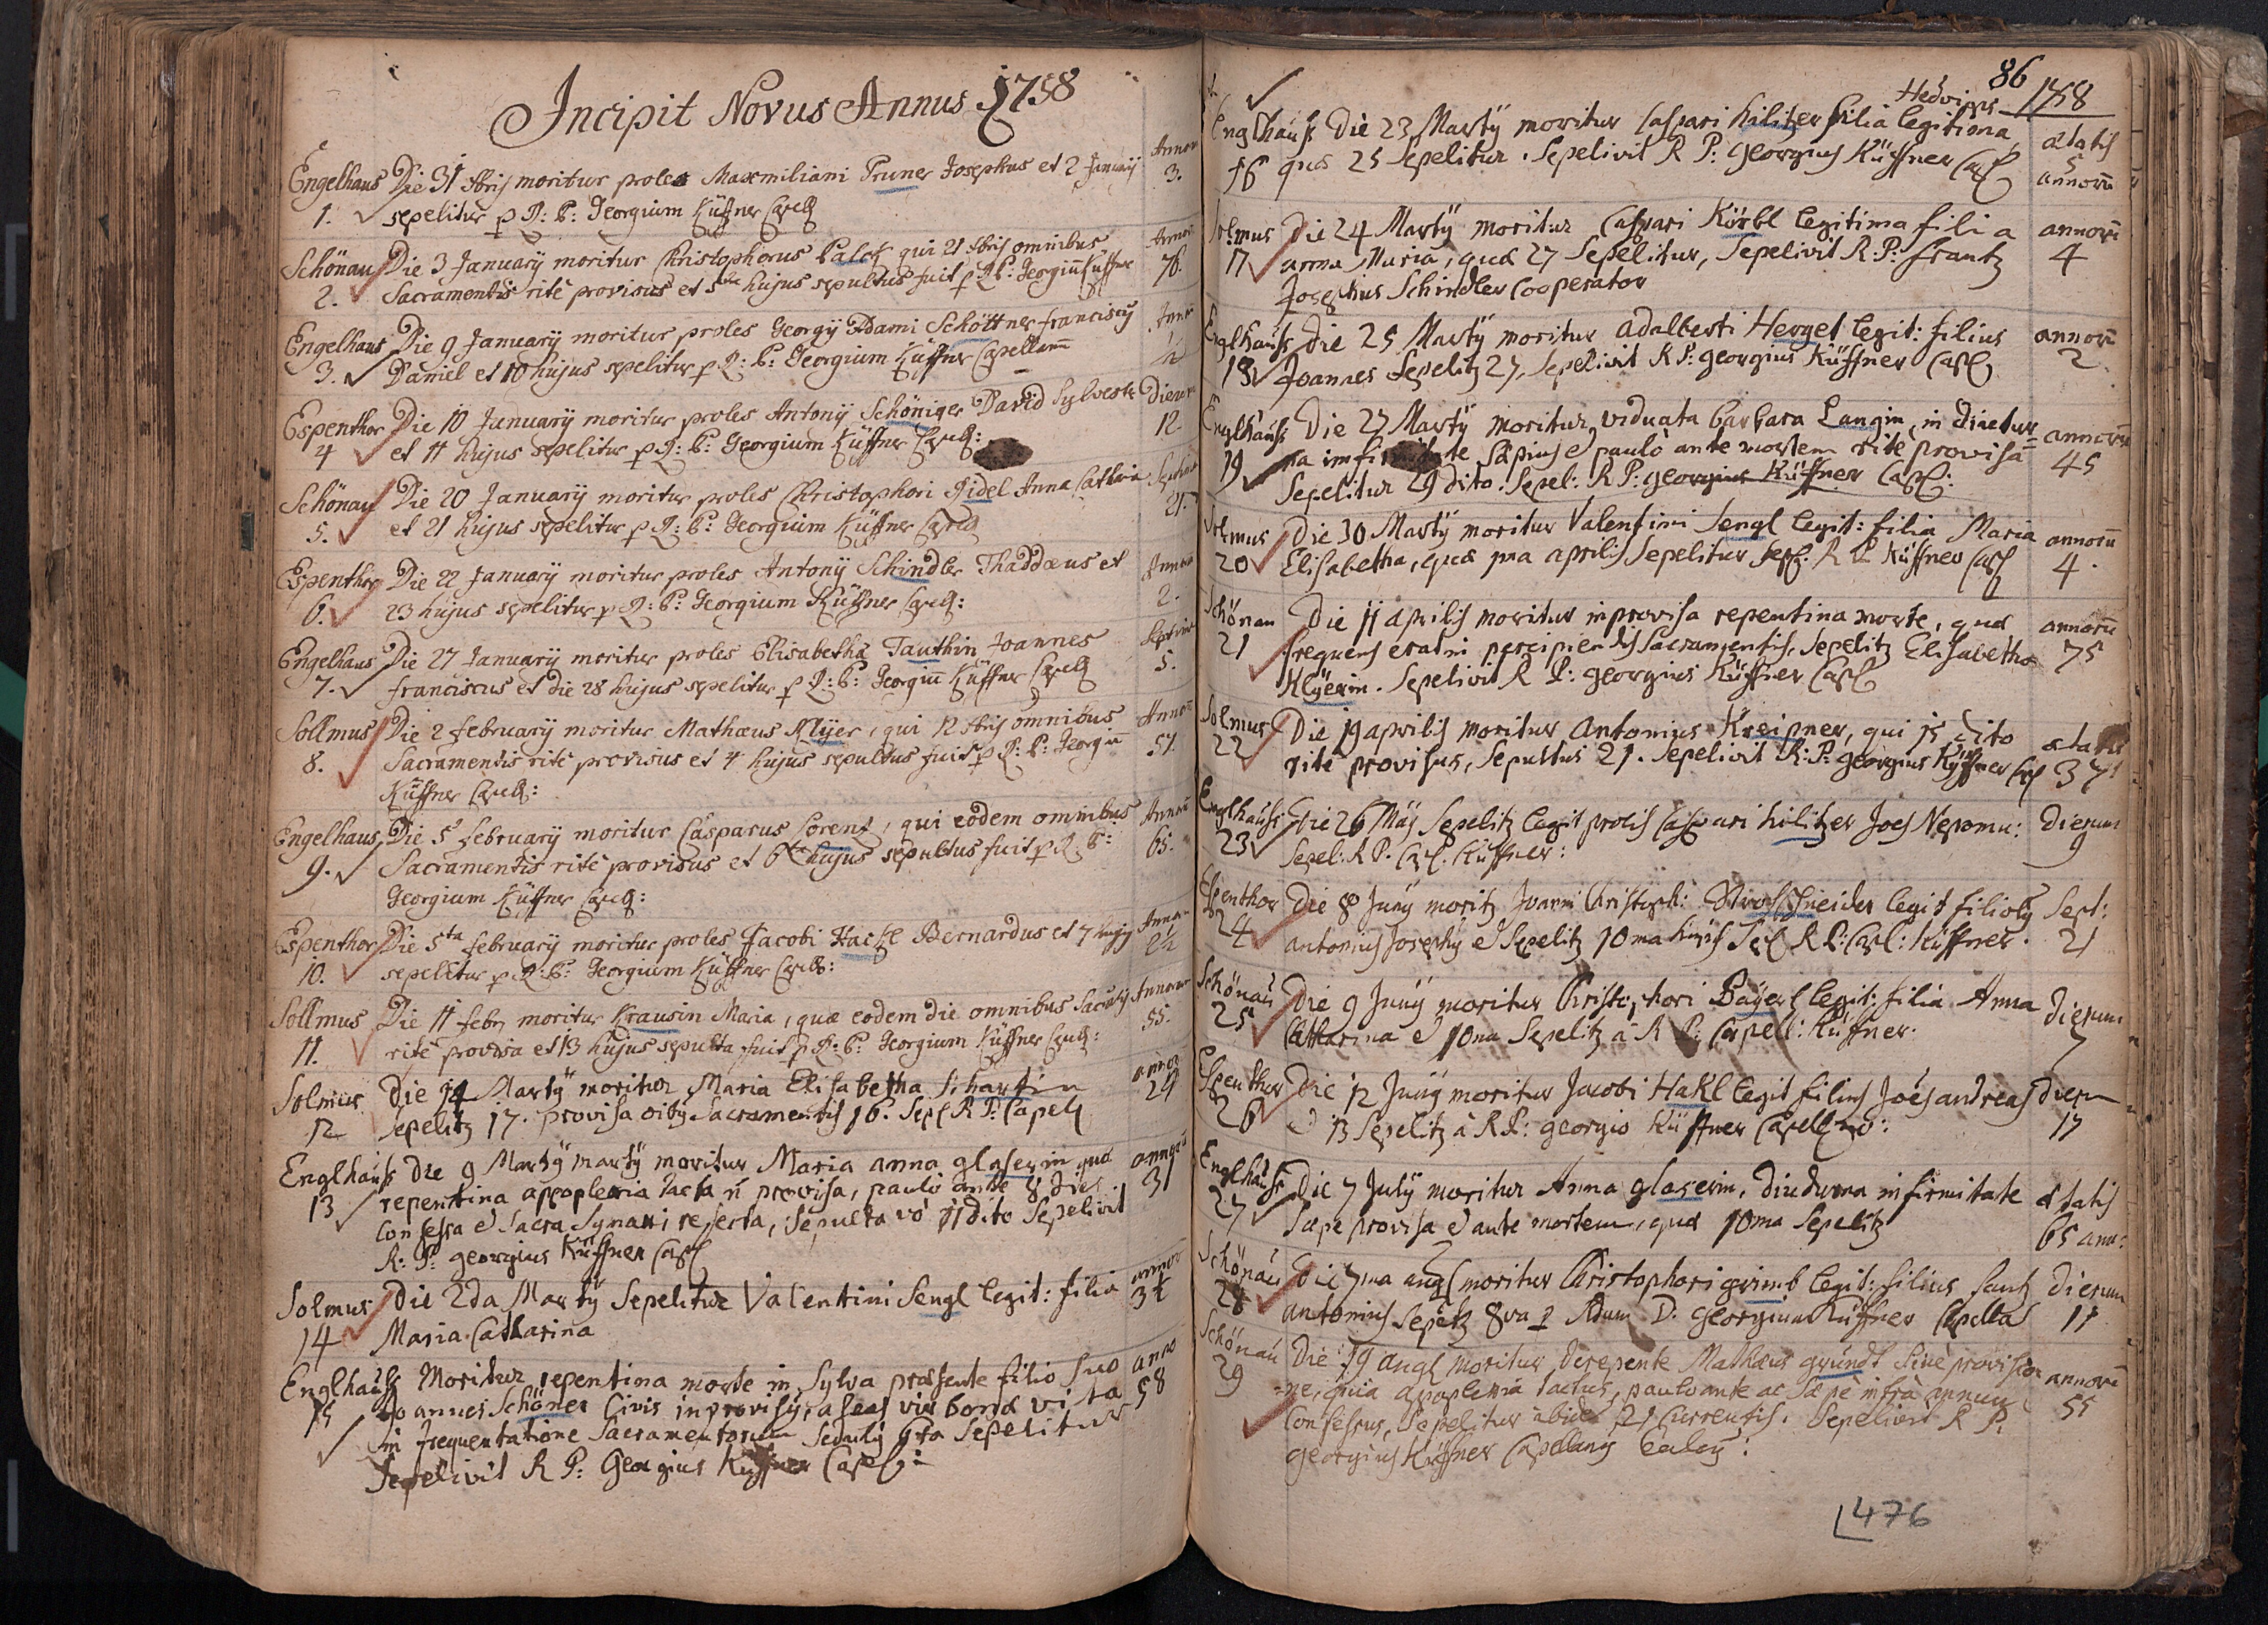 Incipit Novus Annus 1758
Engelhaus Die 31 Xbris moritur proles Maxmiliani Pruner Josephus et 2 Januarij Annor
1. sepelitur p R: P: Georgium Küffner Capell 3.
Schönau Die 3 Januarij moritur Christophorus Palck qui 21 Xbris omnibus Annor
2. Sacramentis rite provisus et 5 hujus sepultus fuit p R: P: Georgiu Küffner 76.
Engelhaus Die 9 Januarij moritur proles Georgij Adami Schöttner Franciscus
3. Daniel et 10 hujus sepelitur p R: P: Georgium Küffner Capellanu ½
Espenthor Die 10 Januarij moritur proles Antonij Schöniger David Sylvester Dierum
4 et 11 hujus sepelitur p R: P: Georgium Küffner Capell: 12.
Schönau Die 20 Januarij moritur proles Christophori Ridel Anna
5. et 21 hujus sepelitur p R: P: Georgium Küffner Capell 21.
Espenthor Die 22 Januarij moritur proles Antonij Schindler Thaddæus et
6. 23 hujus sepelitur p R: P: Georgium Küffner Capell: 2.
Engelhaus Die 27 Januarij moritur proles Elisabetha Tauthin Joannes
7. Franciscus et die 28 hujus sepelitur p R: P: Georgiu Küffner Capell 5.
Sollmus Die 2 February moritur Mathæus Klijer, qui 12 Xbris omnibus Annor
8. Sacramentis rite provisus et 4 hujus sepultus fuit p R: P: Georgiu 57.
Küffner Capell:
Engelhaus Die 5 February moritur Casparus Lorenz, qui eodem omnibus Annor
9. Sacramentis rite provisus et 6ta hujus sepultus fuit p R: P: 65.
Georgium Küffner Capell:
Espenthor Die 5ta February moritur proles Jacobi Hackl Bernardus et 7 hujus
10. sepelitur p R: P: Georgium Küffner Capell: 2½
Sollmus Die 11 Febr moritur Krausin Maria, quæ eodem die omnibus
11. rite provisa et 13 hujus sepulta fuit p R: P: Georgium Küffner Capell: 55.
Solmus Die 14 Martÿ moritur Maria Elisabetha Schartin annor
12 sepelitz 17. provisa oibq Sacramentis 16. Sepl R P: Capell 24
Englhauss Die 9 Martÿ martÿ moritur Maria anna glaserin quæ annoru
13 repentina appoplexia tacta n provisa, paulo ante 8 dies 31
Confessa et Sacra Synaxi refecta, sepulta vo 11 dito Sepelivit
R: P: georgius Küffner Capl
Solmus Die 2da Martÿ Sepelitur Valentini Sengl legit: filia annor
14 Maria Catharina
Englhauss Moritur repentina morte in Sylva præsente filio suo anno
15 Joannes Schöner Civis 58
in frequentatione Sacramentorum sedulus 6ta Sepelitur
Sepelivit R P: Georgius Küffner Capl:
86
Hedvigis 1758
Englhauss Die 23 Martÿ moritur Caspari hilitzer filia legitima ætatis
16 quæ 25 Sepelitur. Sepelivit R P: georgius Küffner Capl 5 annoru
Solmus Die 24 Martÿ moritur Caspari Körbl legitima filia annoru
17 anna Maria, quæ 27 Sepelitur, Sepelivit R: P: frantz 4
Josephus Schindler Cooperator
Englhauss Die 25 Martÿ moritur adalberti Herget legit: filius annoru
18 Joannes Sepelitz 27, Sepelivit R P: georgius Küffner Capl 2
Englhauss Die 27 Martÿ moritur viduata barbara Langin, in diutur- annoru
19 na infirmitate sæpius et paulo ante mortem rite provisa 45
Sepelitur 29 dito. Sepel: R P: georgius Küffner Capl:
Solmus Die 30 Martÿ moritur Valentini Sengl legit: filia Maria annoru
20 Elisabetha, quæ ma aprilis Sepelitur Sepl. R P Küffner Capl 4.
Schönau Die 11 aprilis moritur inprovisa repentina morte, quæ annoru
21 frequens erat in percipiendis Sacramentis, Sepelitz Elisabetha 75
Klÿerin. Sepelivit R P: georgius Küffner Capl
Solmus Die 19 aprilis moritur antonius Kreipner, qui 15 dito ætatis
22 rite provisus, Sepultus 21. Sepelivit R: P: georgius Küffner Capl 37
Englhauss Die 26 Maÿ Sepelitz legit prolis Caspari hilitzer Joes Nepomu: Dierum
23 Sepel: R P. Capl. Küffner: 9
Espenthor Die 8 Junÿ moritz Joanni Christoph: legit filiolq Sept:
24 antonius Josephq et Sepelitz 10ma hujus Sepl R P: Capl: Küffner. 21
Schönau Die 9 Junÿ moritur Christophori Baÿerl legit: filia Anna Dierum
25 Catharina et 10ma Sepelitz â R P: Capell: Küffner. 7
Espenthor Die 12 Junÿ moritur Jacobi Hakl legit filius Joes andreas dieru
26 et 13 Sepelitz à R P: georgio Küffner Capellano: 17
Englhauss Die 7 Julÿ moritur Anna glaserin, diuturna infirmitate ætatis
27 Sæpe provisa et ante mortem, quæ 10ma Sepelitz 65 ann:
Schönau Die 7ma augl moritur Christophori grimb legit: filius frantz Dierum
28 antonius Sepelitz 8va p Adum D: georgium Küffner Capella 11
Schönau Die 19 augl moritur derepente Mathæus gründl sine provisio- annoru
29 ne, quia apoplexia tactus, paulo ante ac sæpe infra annum 55
Confessus, Sepelitur 21 Currentis. Sepelivit R P.
georgius Küffner Capellanus
476